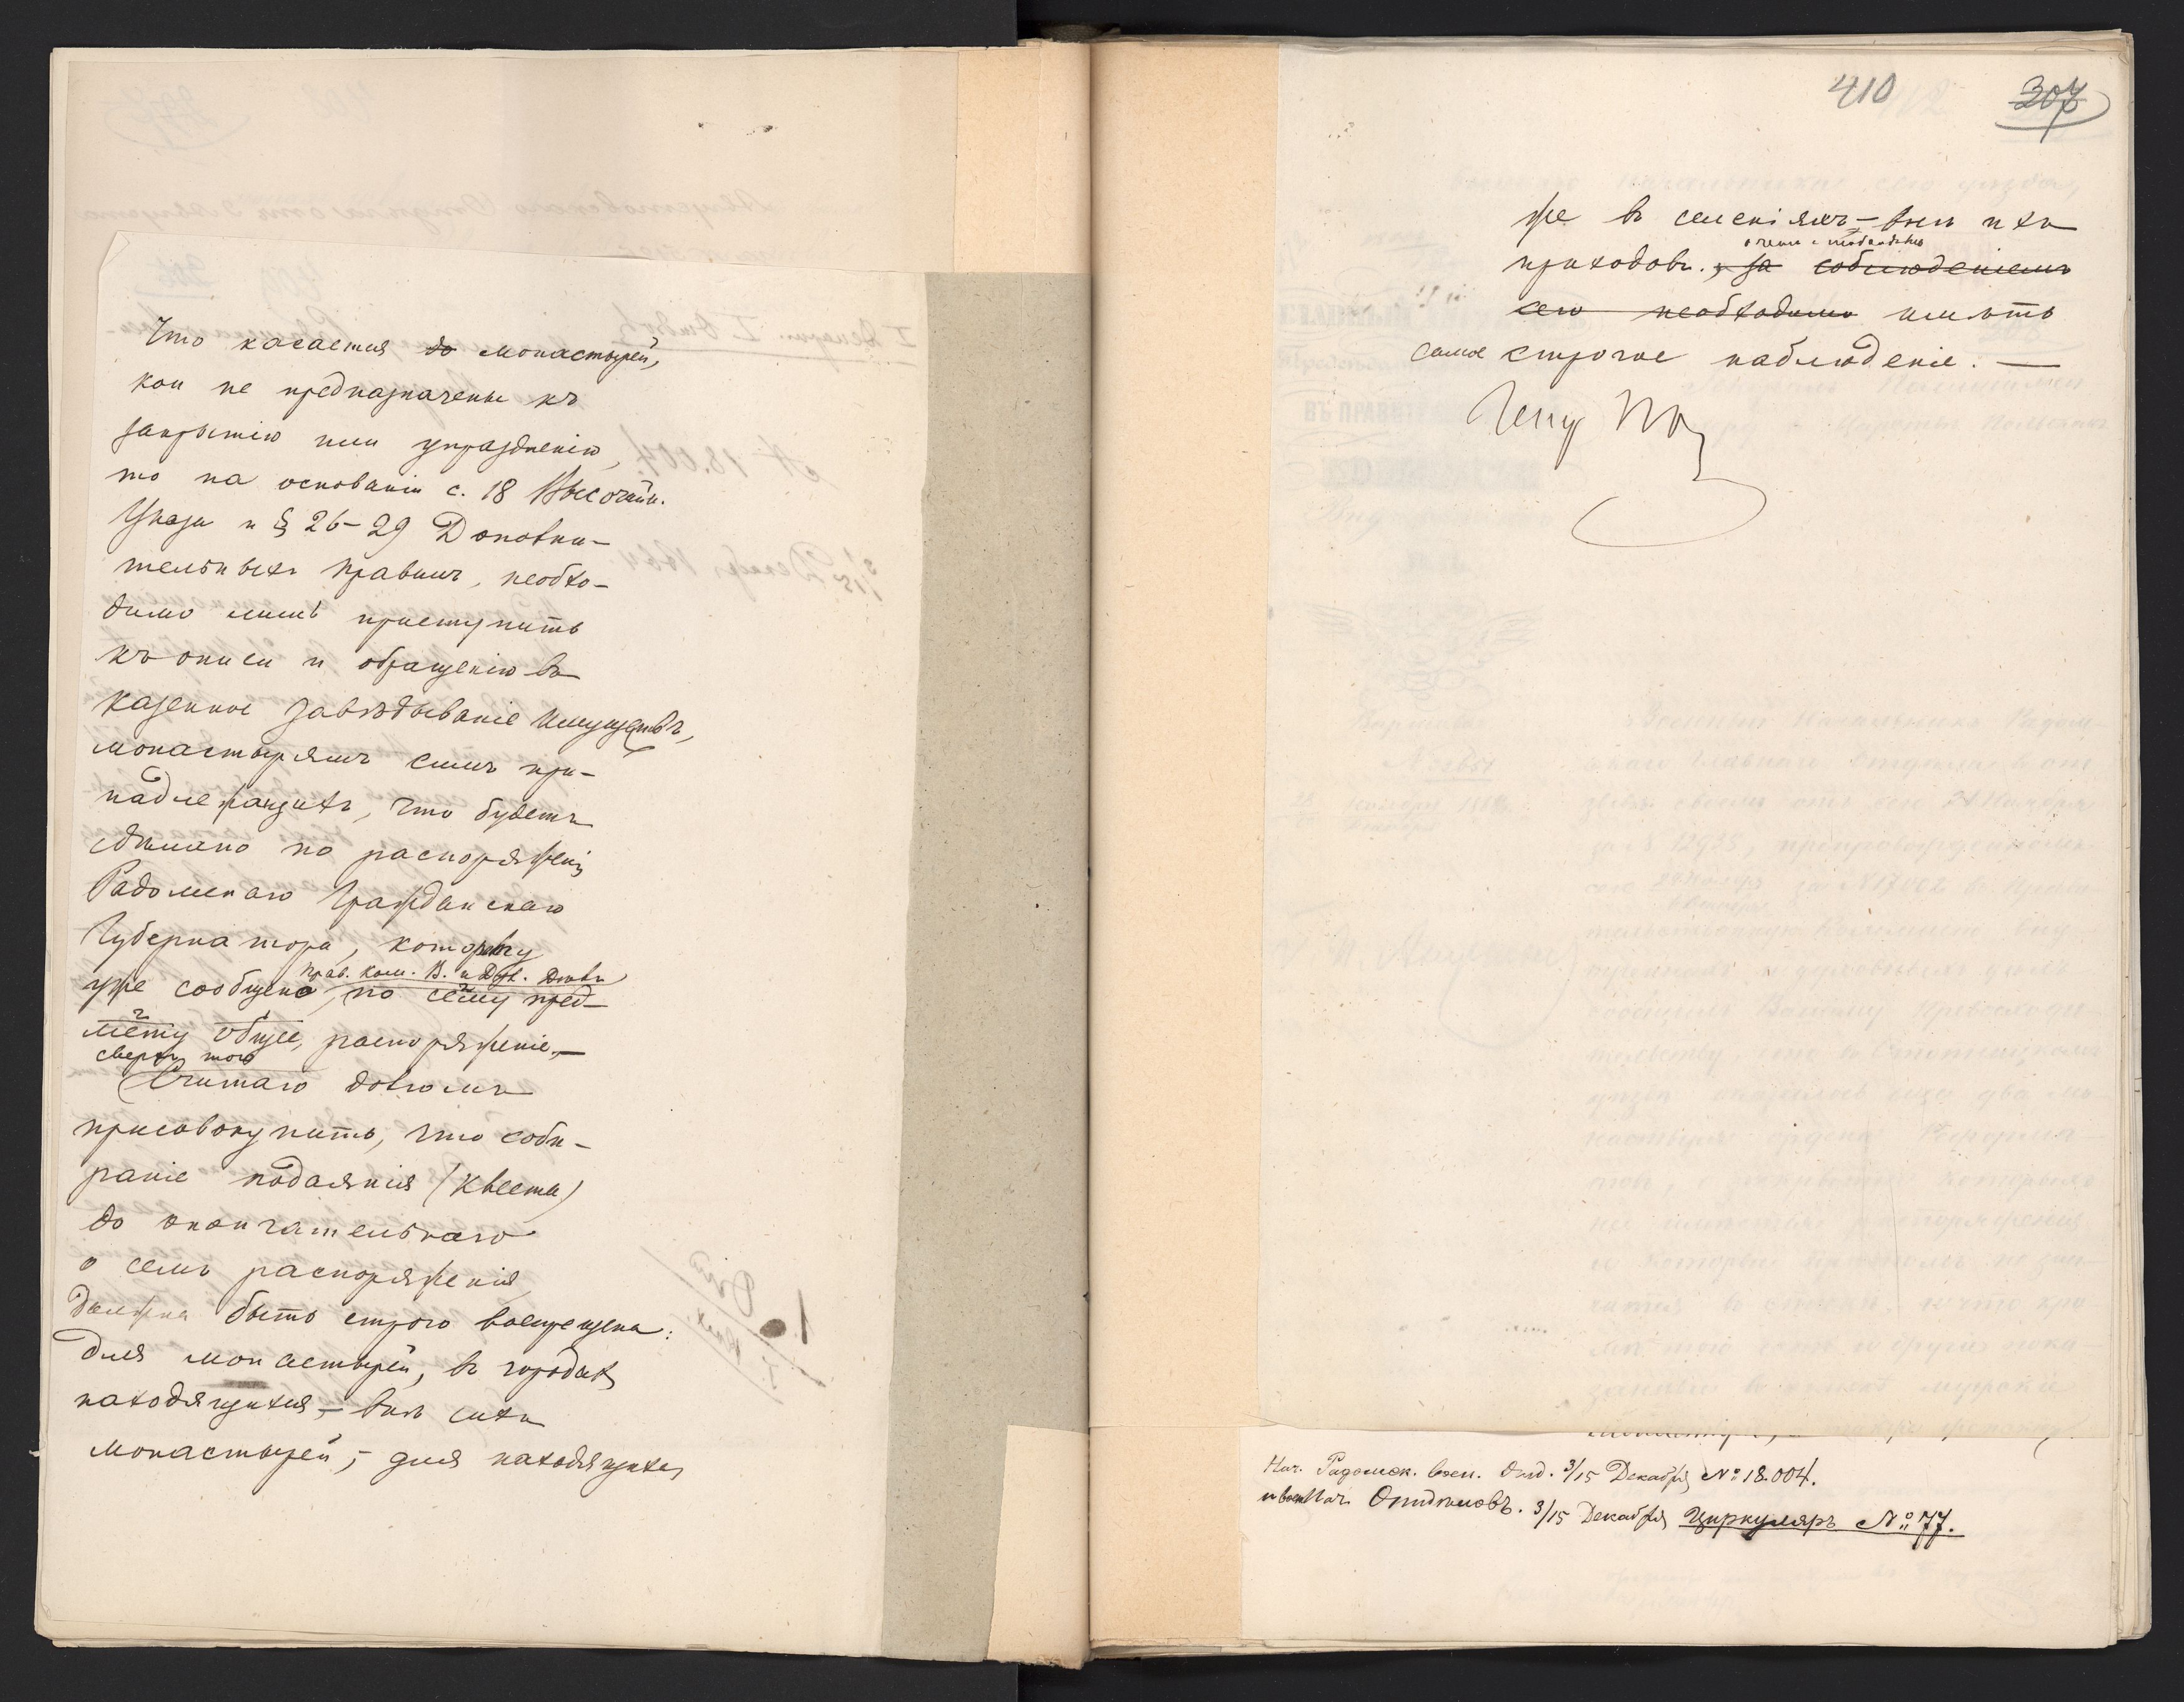 Что касается до монастырей,
кои не предназначены къ
закрытію или упраздненію,
то на основаніи с. 18 Высочайш.
Указа и § 26-29 Дополни-
тельныхъ правилъ, необхо-
димо лишь приступить
къ описи и обращенію въ
казенное завѣдываніе имуществъ,
монастырямъ симъ при-
надлежащихъ, что будетъ
сдѣлано по распоряженію
Радомскаго Гражданскаго
Губернатора, которому
Прав. Ком. В. и Дух. Дѣлъ
уже сообщено по сему пред-
мету общее распоряженіе.—
сверхъ того
Считаю долгомъ
присовокупить, что соби-
раніе подаянія (квеста)
до окончательнаго
о семъ распоряженія
должна быть строго воспрещена:
для монастырей, въ городахъ
находящихся,— внѣ сихъ
монастырей,- для находящихся
410
307
же въ селеніяхъ — внѣ ихъ
приходовъ., за соблюденіемъ
сего необходимо имѣть
самое строгое наблюденіе. —
Нач. Радомск. воен. Отд. 3/15 Декабря № 18.004.
и воен. Нач. Отдѣловъ. 3/15 Декабря Циркуляръ № 77.